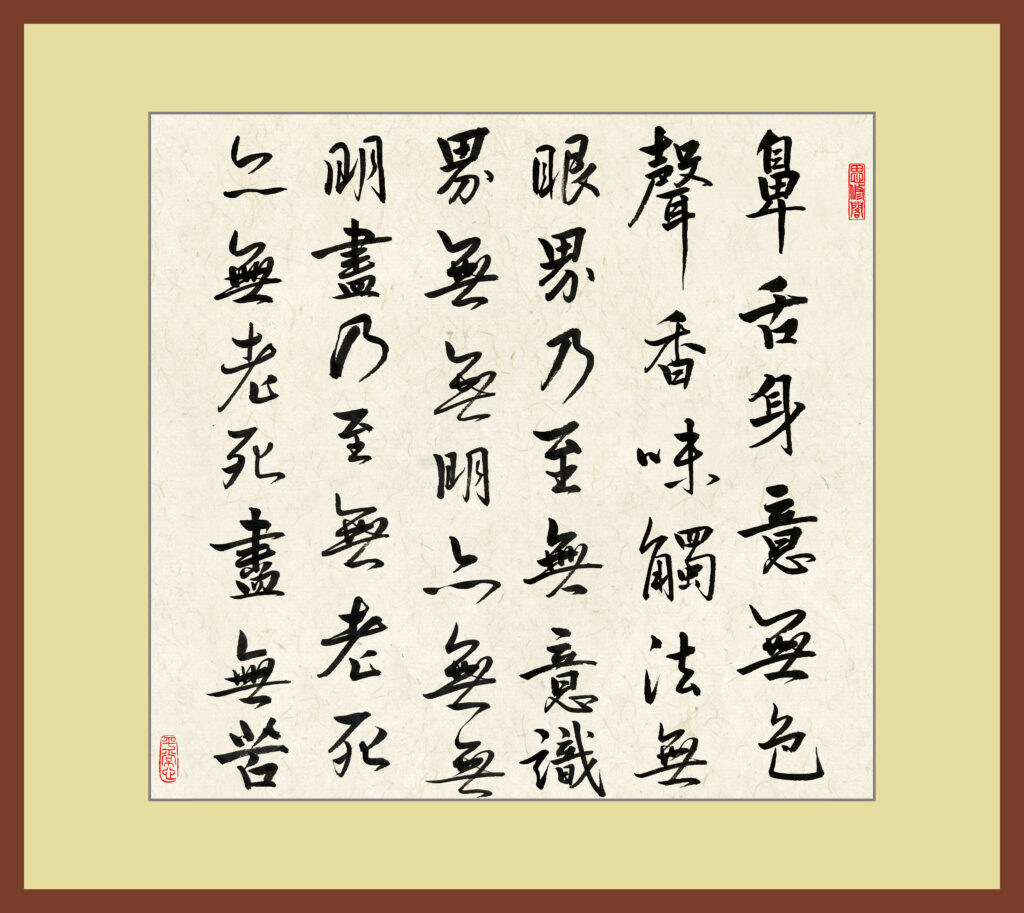 鼻舌身意無色
聲香味觸法無
眼界乃至無意識
界無無明亦無無
明盡乃至無老死
亦無老死盡無苦
思修閣
平常心